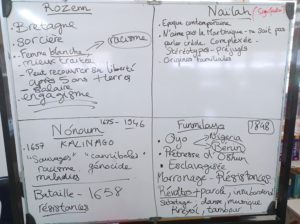 Rozenn
Bretagne
Sorcière
Femme blanche → racisme
mieux traitée
Peut recouvrer sa liberté
après 5 ans + terres
+ salaire
engagisme
Naïlah
Epoque contemporaine
N'aime pas la Martinique - ne sait pas
parler créole. Complexée -
Stéréotypes - préjugés
Origines familiales
Nónoum
1635 - 1946
1657 KALINAGO
"Sauvages" "cannibales"
racisme génocide
maladies
Bataille - 1658
résistances
Funmilayo
1848
Oyo Nigeria
Benin
Prêtresse d'Oshun
Esclavagée
Marronage - Résistances
Révoltes - parole
Sabotage danse, musique
Kréyol, tambour